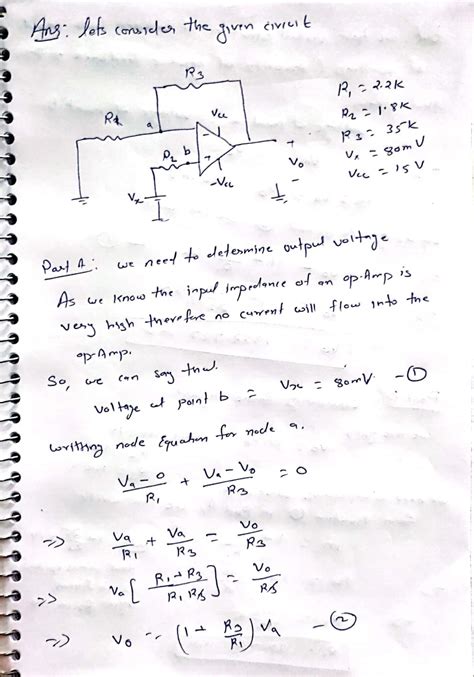 Ans: lets consider the given circuit
R3
R1 a Vcc
R2 b
-Vcc
Vx
+
Vo
-
R1 = 2.2K
R2 = 1.8K
R3 = 35K
Vx = 80mV
Vcc = 15V
Part A: we need to determine output voltage
As we know the input impedance of an op-Amp is
very high therefore no current will flow into the
op-Amp.
So, we can say that.
voltage at point b = Vx = 80mV - ①
writting node Equation for node a.
Va-0/R1 + Va-Vo/R3 = 0
=> Va/R1 + Va/R3 = Vo/R3
=> Va [R1+R3/R1R3] = Vo/R3
=> Vo = (1 + R3/R1) Va - ②